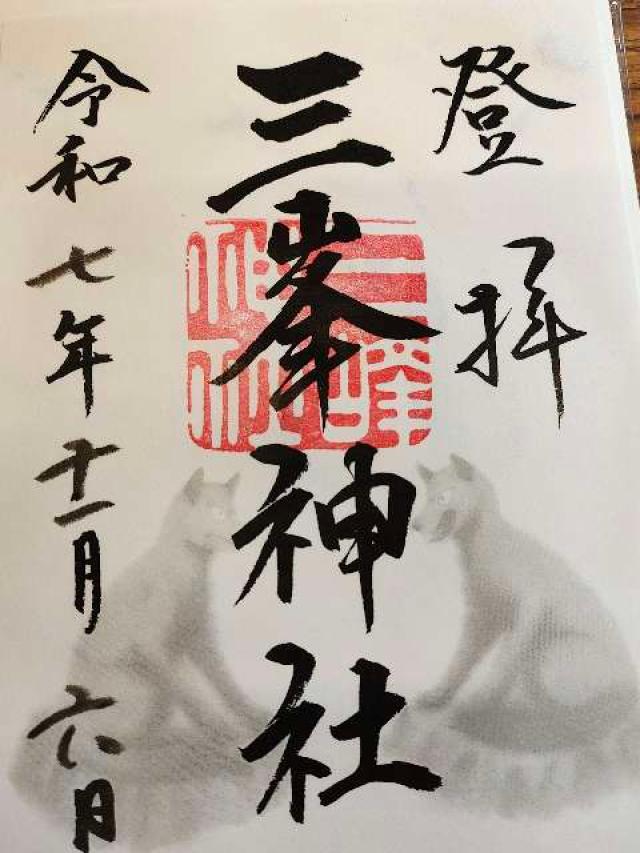 登拝
三峯神社
三峰神社
令和七年十一月六日